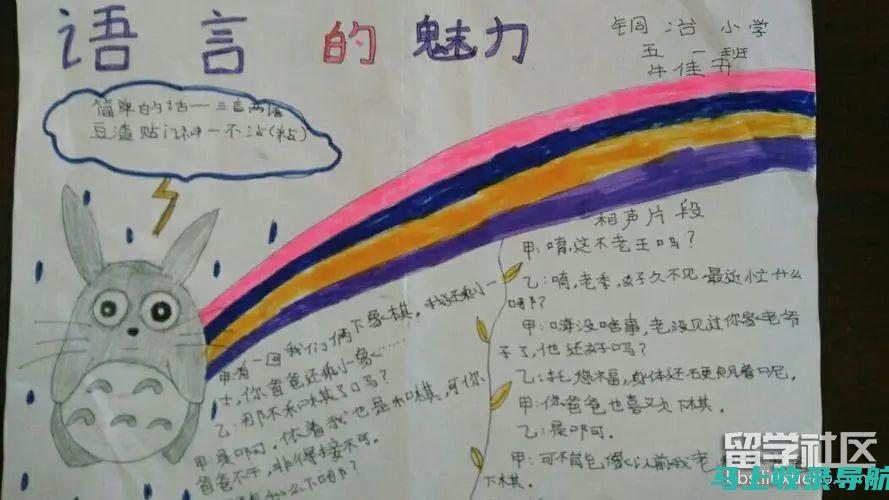 语言的魅力
铜冶小学
五一班
牛佳
简单的话一三言两语
豆渣贴门神一不沾(粘)
相声片段
甲:唷,这不老王吗?
乙:唷,老李,好久不见,最近忙什么
呐?
甲:嗨没啥事,老没见过你家老爷
子了,他还好吗?
乙:托您福,身体还不更硬着呐。
甲:你爸爸也喜又大下棋。
乙:是啊可。
甲:可不
以前我老
下棋。
甲:有一回我们俩下象棋,我
士,你爸爸还剩小象……
乙:那不来和棋了吗?
甲:是啊可,依着我也是和棋,可你
爸爸不干,非得接不可。
留学社区
bbs.liuxue86.com
马上收录导航